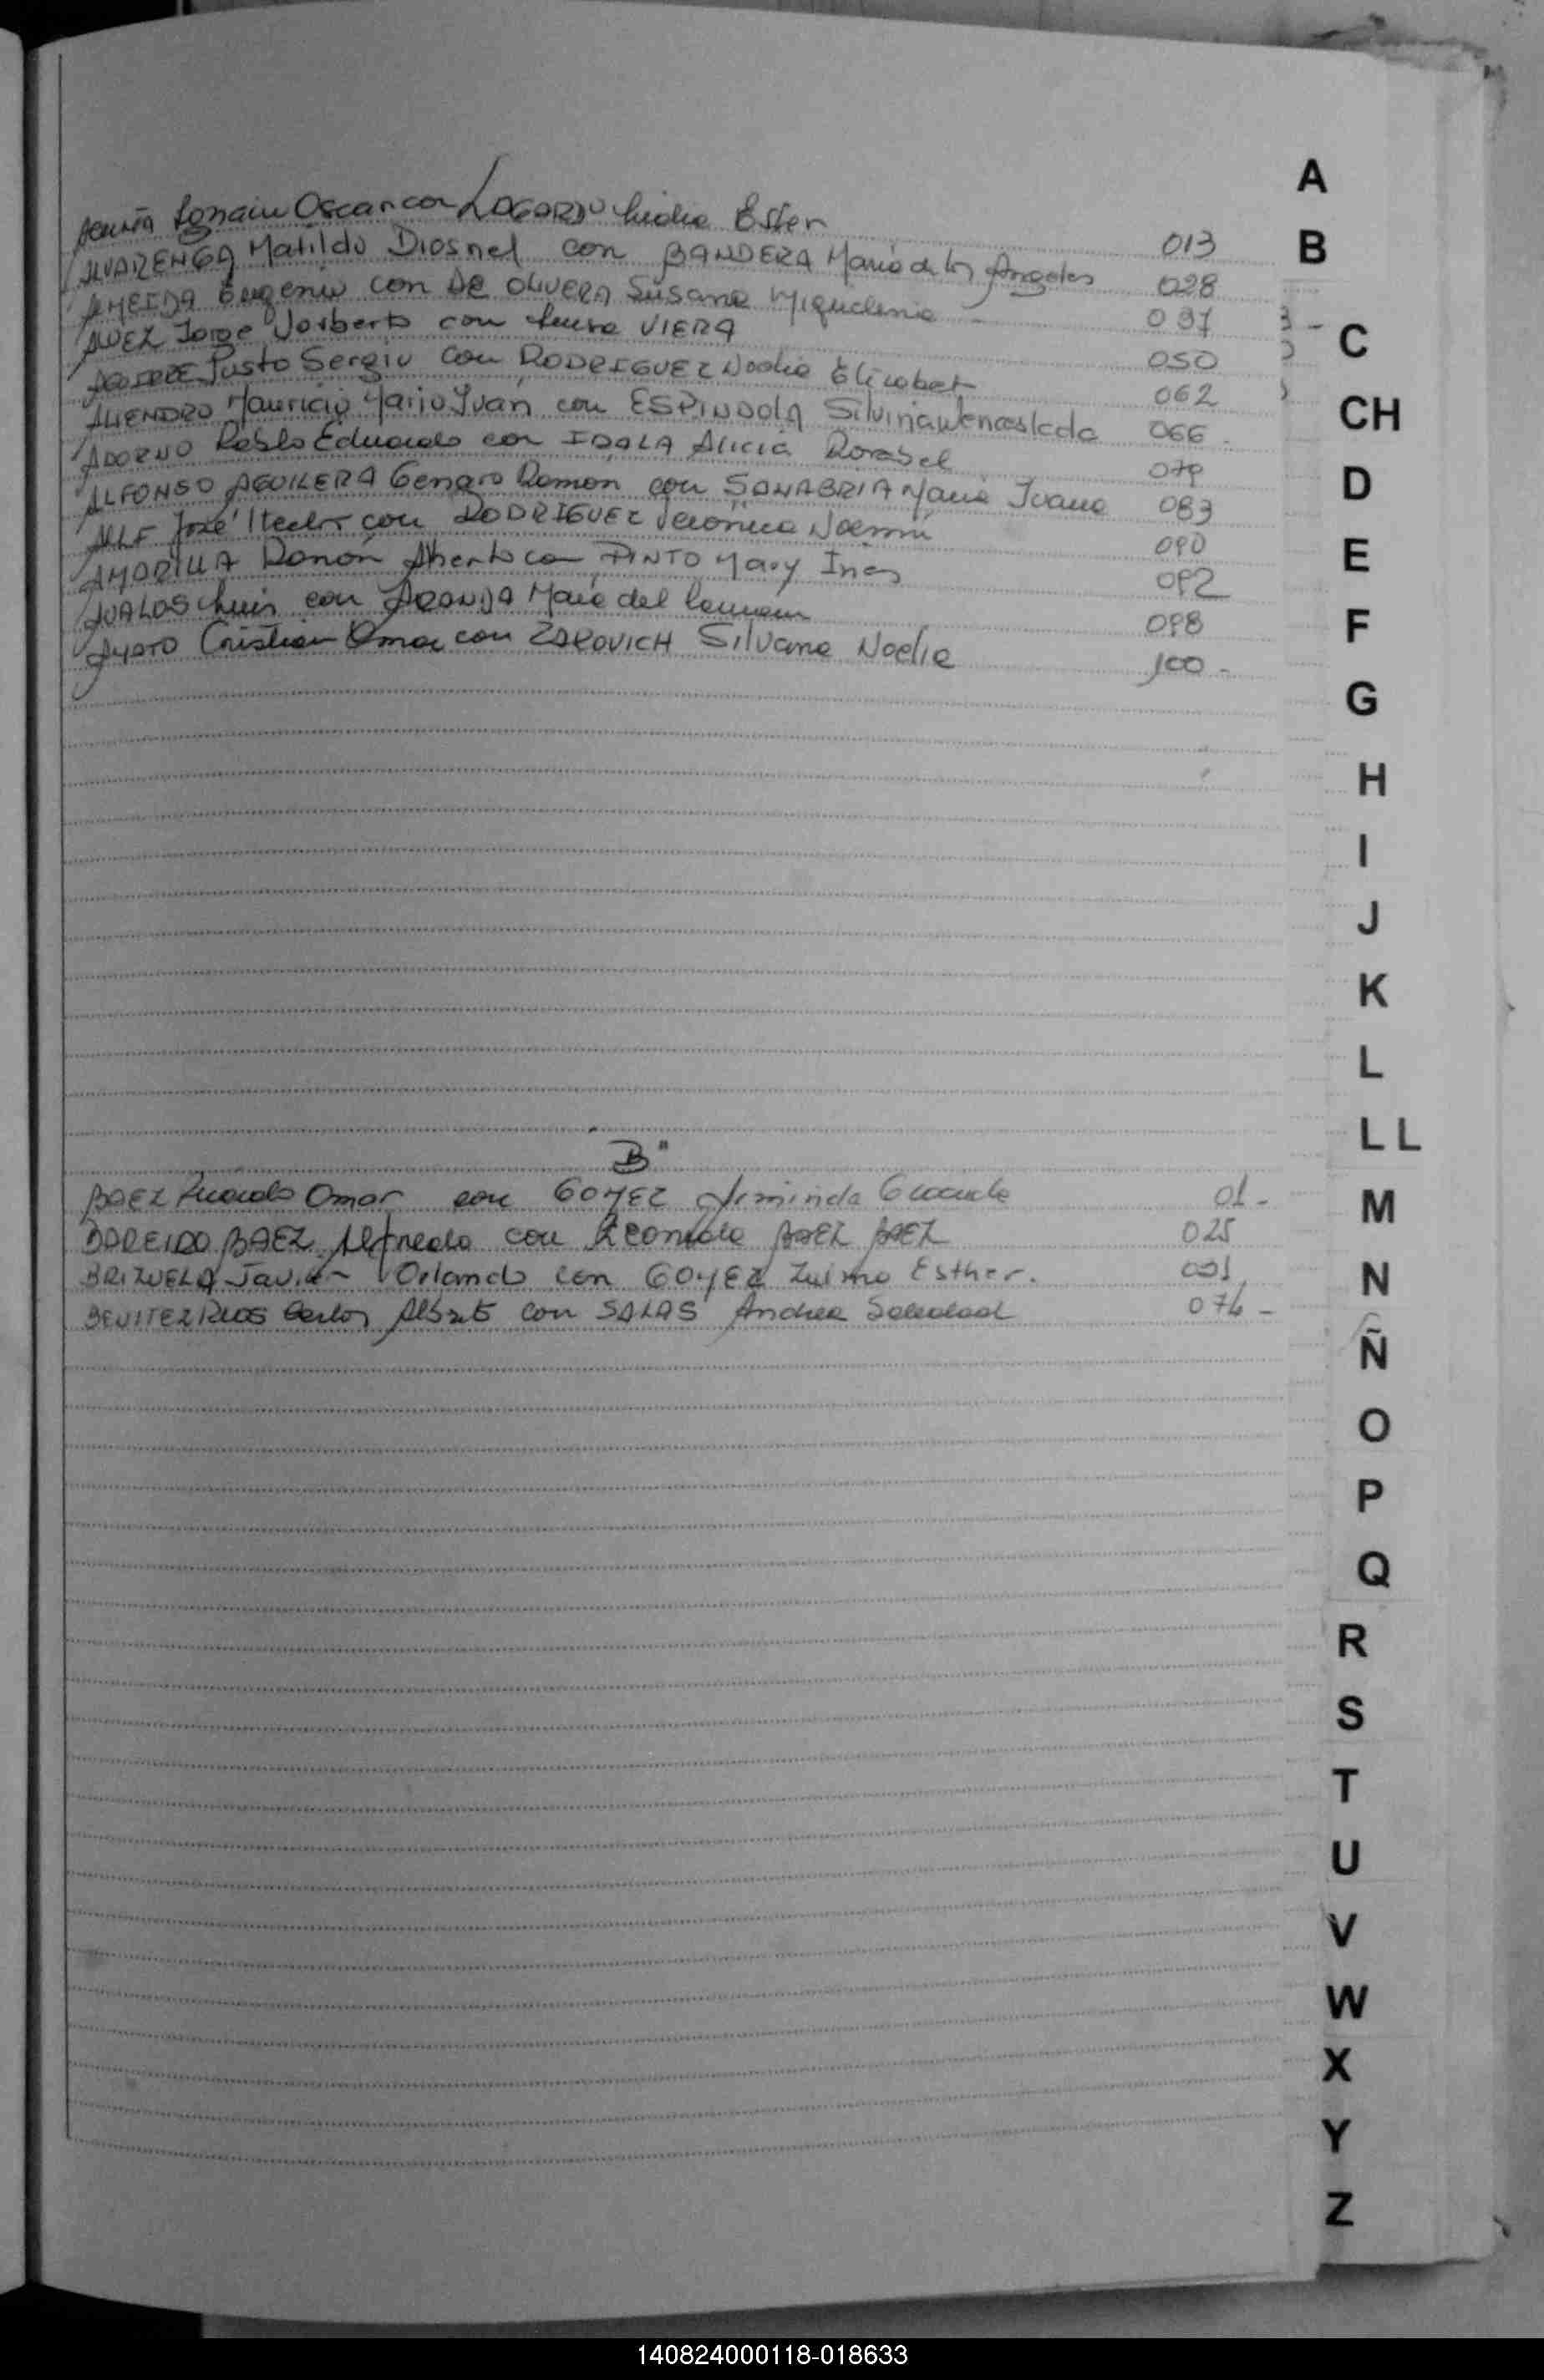 ACUÑA Ignacio Oscar con LOGARZO Lidia Ester 013
ALVARENGA Matildo Diosnel con BANDERA Maria de los Angeles 028
ALMEIDA Eugenio con DE OLIVERA Susana Miquelina - 037
ALVEZ Jorge Norberto con VIERA 050
AGUIRRE Justo Sergio con RODRIGUEZ Noelia Elizabet 062
ALIENDRO Mauricio Mario Ivan con ESPINDOLA Silvina Wenceslada 066
ADORNO Pablo Eduardo con Alicia 079
ALFONSO AGUILERA Genaro Ramon con SANABRIA Maria Juana 083
José Hector con RODRIGUEZ Veronica Noemi 090
AMARILLA Ramón Alberto con PINTO Mary Ines 092
AVALOS Luis con ARANDA Maria del Carmen 098
Cristian Omar con ZAROVICH Silvana Noelia 100 -
"B"
BAEZ Ricardo Omar con GOMEZ Graciela 01 -
BAREIRO BAEZ Alfredo con BAEZ BAEZ 025
BRIZUELA Javier Orlando con GOMEZ Zulma Esther.
BENITEZ RIOS Carlos Alberto con SALAS Andrea Soledad 076 -
A
B
C
CH
D
E
F
G
H
I
J
K
L
LL
M
N
Ñ
O
P
Q
R
S
T
U
V
W
X
Y
Z
140824000118-018633